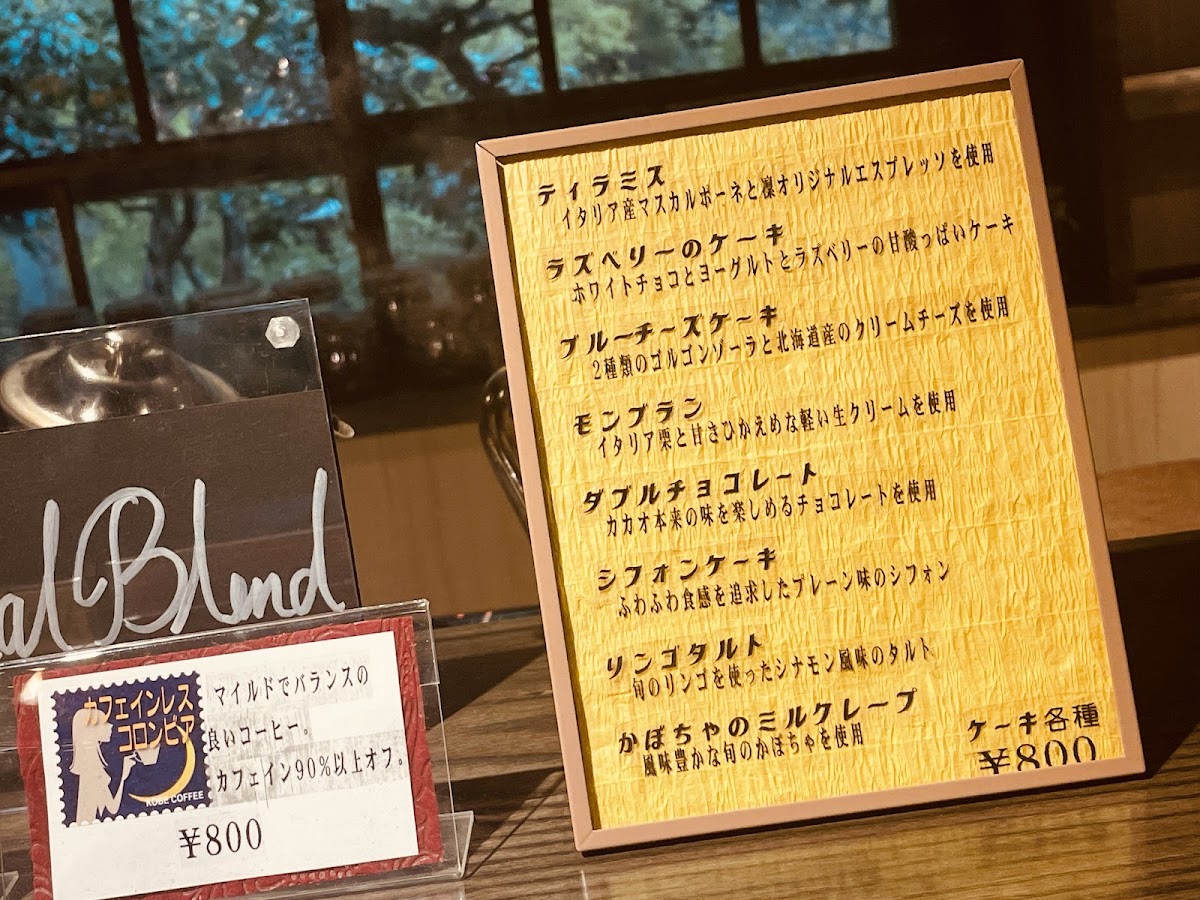 ティラミス
イタリア産マスカルポーネと凛オリジナルエスプレッソを使用
ラズベリーのケーキ
ホワイトチョコとヨーグルトとラズベリーの甘酸っぱいケーキ
ブルーチーズケーキ
2種類のゴルゴンゾーラと北海道産のクリームチーズを使用
モンブラン
イタリア栗と甘さひかえめな軽い生クリームを使用
ダブルチョコレート
カカオ本来の味を楽しめるチョコレートを使用
シフォンケーキ
ふわふわ食感を追求したプレーン味のシフォン
リンゴタルト
旬のリンゴを使ったシナモン風味のタルト
かぼちゃのミルクレープ
風味豊かな旬のかぼちゃを使用
ケーキ各種
¥800
al Blend
カフェインレス
コロンビア
KOBE COFFEE
マイルドでバランスの
良いコーヒー。
カフェイン90%以上オフ。
¥800